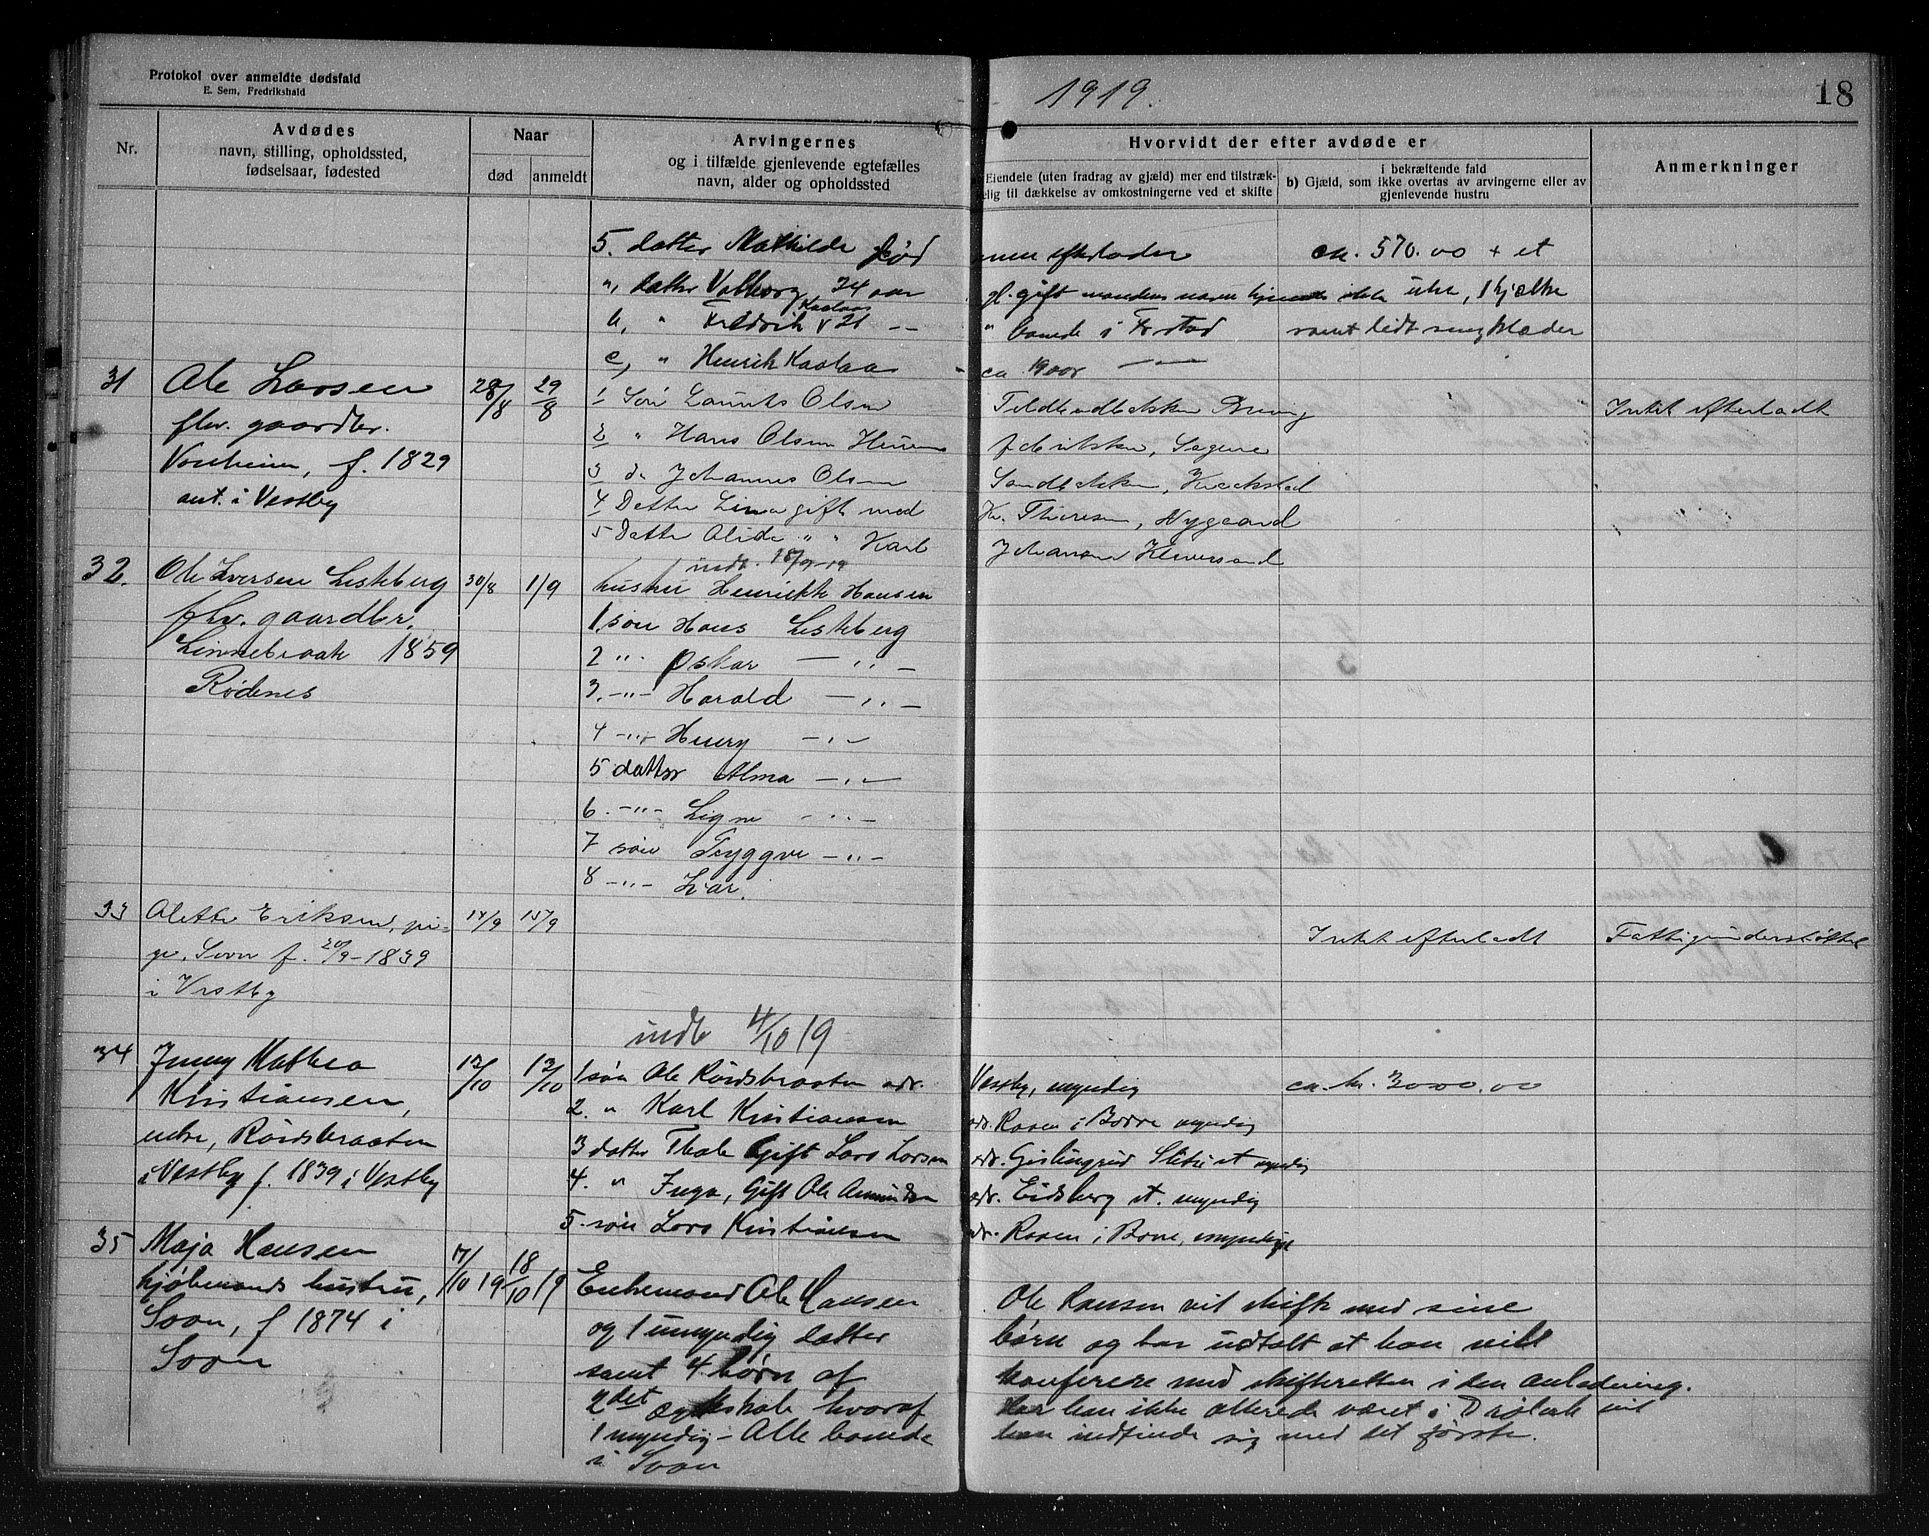 Protokol over anmeldte dødsfald
E. Sem, Fredrikshald
1919.
18
Nr.
Avdødes
navn, stilling, opholdssted,
fødselsaar, fødested
Naar
død
anmeldt
Arvingernes
og i tilfælde gjenlevende egtefælles
navn, alder og opholdssted
Hvorvidt der efter avdøde er
Eiendele (uten fradrag av gjæld) mer end tilstræk-
elig til dækkelse av omkostningerne ved et skifte
i bekræftende fald
b) Gjæld, som ikke overtas av arvingerne eller av
gjenlevende hustru
Anmerkninger
5. datter Mathilde død
men efterlader
ca. 570.00 + et
a, datter Valborg 24 aar
gl. gift mandens navn ikke uhr, 1 kjælke
b, " Fredrik Kaslaas 21 —
" boende i Fr.stad
samt lidt sengklæder
c, " Henrik Kaslaas
ca 19 aar — " —
31 Ole Larsen 28/8 29/8
flv. gaardbr.
f. 1829
ant. i Vestby
1 Søn Laurits Olsen
Intet efterladt
2 " Hans Olsen
3 do Johannes Olsen
4 Datter Lina gift med
Kr. Theresen, Nygaard
5 Datter Alide " " Karl
Johansen
indb. 18/9-19
32. Ole Iversen Liskeberg 30/8 1/9
flv. gaardbr.
Linnebraate 1859
Rødenes
hustru Henrikke Hansen
1. søn Hans Liskeberg
2 " Oskar — " —
3. — " — Harald — " —
4 — " — Henry — " —
5 datter Alma — " —
6. — " — Signe — " —
7 søn Tryggve — " —
8 — " — Ivar.
33 Alette Eriksen, pi- 14/9 15/9
ge, Soon f. 20/9-1839
i Vestby
Intet efterladt
Fattigunderstøttet
indb 4/10 19
34 Jenny Mathea 12/10 13/10
Kristiansen,
enke, Røidsbraaten
i Vestby f. 1839 i Vestby
1 søn Ole Røidsbraaten adr.
Vestby, myndig
ca. kr. 3000.00
2. " Karl Kristiansen
adr. Rosen i Borre myndig
3 datter Thale Gift Lars Larsen
adr. Gislingrud st myndig
4. " Inga, Gift Ole Amundsen
adr. Eidsberg st. myndig
5. søn Lars Kristiansen
adr. Rosen i Borre, myndige
35 Maja Hansen 17/10 19 18/10 19
kjøbmands hustru,
Soon, f 1874 i
Soon
Enkemand Ole Hansen
og 1 umyndig datter
samt 4 børn af
2det ægteskab hvoraf
1 myndig — Alle boende
i Soon
Ole Hansen vil skifte med sine
børn og har udtalt at han vil
konferere med skifteretten i den anledning.
Har han ikke allerede været i Drøbak vil
han indfinde sig med det første.